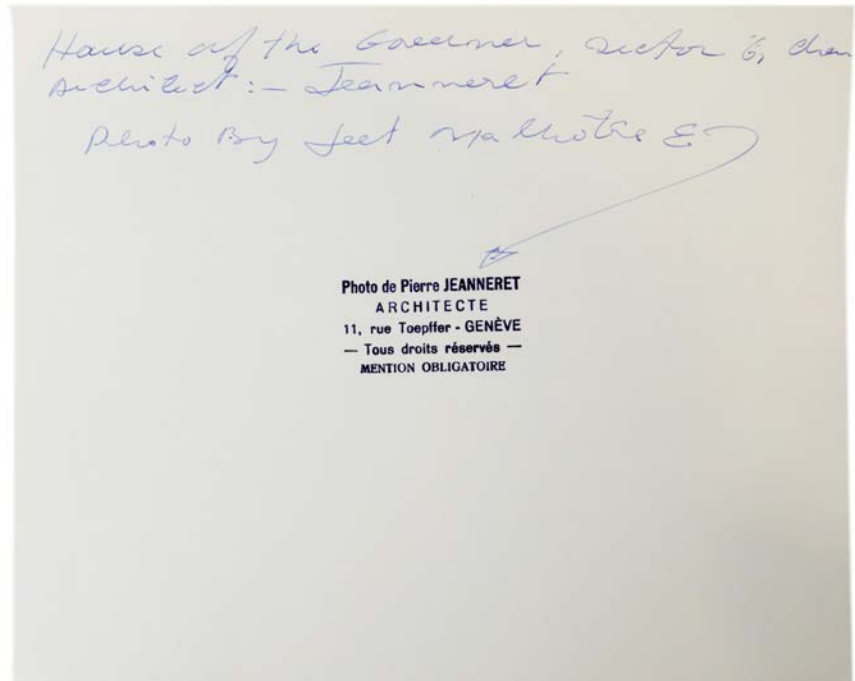 House of the Governer, Sector 6, Chan
Architect:- Jeanneret
Photo By Jeet Malhotra &
Photo de Pierre JEANNERET
ARCHITECTE
11, rue Toepffer - GENÈVE
— Tous droits réservés —
MENTION OBLIGATOIRE